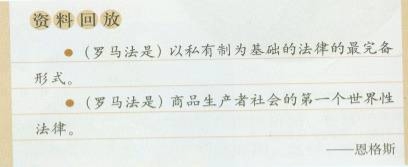 资料回放
●（罗马法是）以私有制为基础的法律的最完备
形式。
●（罗马法是）商品生产者社会的第一个世界性
法律。
——恩格斯